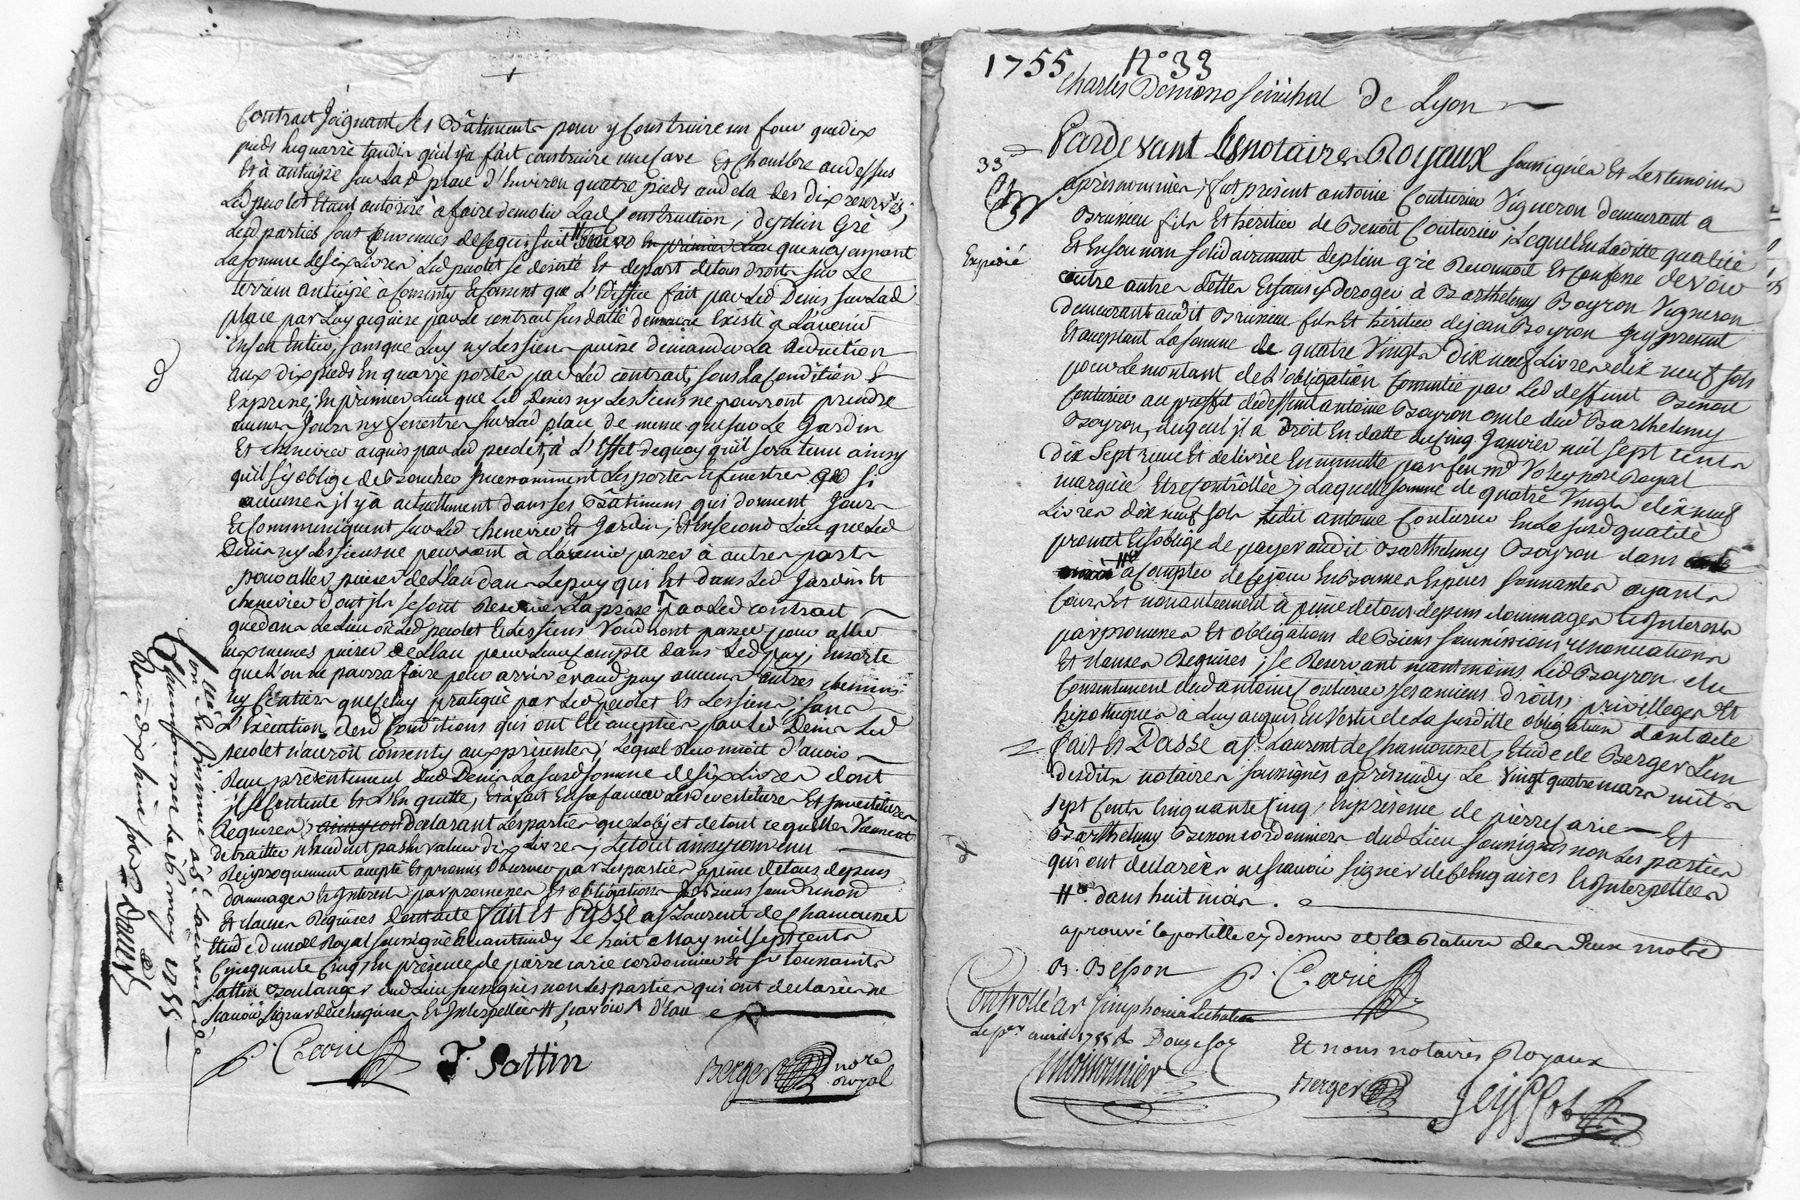 Contrait Joignant les Bâtiments pour y Construire un four que dix
pieds en quarré tandis qu'il y a fait construire une Cave Et Chambre au dessus
Et à anticipé sur lad place d'Environ quatre pieds au dela des dix reservés,
Led peolet Etant autorisé à faire demolir lad Construction, de plein Gré
Led parties sont Convenues de ce qui suit que moyennant
La somme de six Livres Led peolet se desiste Et depart de tous droits sur Le
terrein anticipé a Consenty Et Consent que L'Edifice fait par Led Denis sur Lad
place par Luy acquise par Le contrait susdatté demeure Existé à L'avenir
En son Entier, sans que Luy ny Les siens puisse demander La Reduction
aux dix pieds En quarré portés par Led contrait, sous La Condition
Exprise, En premier Lieu que Led Denis ny Les siens ne pourront prendre
aucuns Jours ny fenestres sur Lad place de meme que sur Le Jardin
Et chenevier acquis par Led peolet, à L'Effet de quoy qu'il sera tenu ainsy
qu'il s'y oblige de Boucher Incessamment Les portes Et fenestres si
aucunes il y a actuellement dans ses Bâtimens qui donnent Jours
Et Communiquent sur Led chenevier Et Jardin, Et En second Lieu que Led
Denis ny Les siens ne pourront à L'avenir passer à autres parts
pour aller puiser de L'Eau dans Le puy qui Est dans Led Jardin Et
chenevier dont ils se sont Reservés La prise par Led contrait
que dans Le Lieu où Led peolet Et Les siens Voudront passer pour aller
Eux memes puiser de L'Eau pour Leur Compte dans Led puy, En sorte
que L'on ne pourra faire pour arriver aud puy aucuns autres chemins
ny sentiers que celuy pratiqué par Led peolet Et Les siens, sans
L'Execution desd Conditions qui ont Eté acceptées par Led Denis Led
peolet n'auroit consenty aux presentes, Lequel Reconnoit d'avoir
Reçu presentement dud Denis La susd somme de six Livres dont
il se Contente Et L'En quitte, Et a fait En sa faveur Les devestitures Et Investitures
Requises, declarant Les parties que L'objet de tout ce qu'elles Viennent
de traitter n'Excedoit pas La valeur de dix Livres, Le tout ainsy convenu
Reciproquement accepté Et promis observer par Les parties a peine de tous depens
dommages Et Interets par promesses Et obligations de Biens soum Renon
Et clauses Requises dont acte fait et Passé a st Laurent de Chamousset
Etude du nore Royal soussigné avant midy Le huit May mil sept cents
Cinquante Cinq En presence de pierre carie cordonnier Et sr toussaints
Sattin Boulanger dud Lieu soussignés non Les parties qui ont declaré ne
sçavoir signer de ce Enquises Et Interpellées
P. Carie T. Sattin Berger nore Royal
Controllé Et Insinué à St Laurent de
Chamousset Le 16 may 1755
Reçu dix huit sols
1755 N° 33
Charles Demono sénéchal de Lyon
Pardevant Les notaires Royaux soussignés Et Les temoins
33
Expedié
après nommés, fut présent antoine Couturier Vigneron demeurant a
Brussieu fils Et heritier de Benoît Couturier, Lequel En Laditte qualité
Et En son nom solidairement de plein gré Reconnoit Et Confesse devoir
outre autres dettes Et sans y deroger à Barthelemy Boyron Vigneron
demeurant audit Brussieu fils Et heritier de jean Boyron Icy present
Et acceptant La somme de quatre Vingts dix neuf Livres dix neuf sols
pour Le montant de L'obligation Consentie par Led deffunt Benoit
Couturier au proffit de deffunt antoine Boyron oncle dud Barthelemy
Boyron, auquel il a droit En datte du cinq Janvier mil sept cents
dix sept reçue Et delivrée En minutte par feu me nore Royal
marquée Et Controllée, Laquelle somme de quatre Vingts dix neuf
Livres dix neuf sols Ledit antoine Couturier En La susd qualité
promet Et s'oblige de payer audit Barthelemy Boyron dans
a Compter de ce jour En Bonnes Especes sonnantes ayants
Cours Et non autrement à peine de tous depens dommages Et Interests
par promesses Et obligations de Biens soumissions renonciations
Et clauses Requises, se Reservant neantmoins Led Boyron du
Consentement dud antoine Couturier ses anciens droits, privilleges Et
hipotheques à Luy acquis En Vertu de La susditte obligation dont acte
fait Et Passé a St Laurent de Chamousset Etude de Berger L'un
desdits notaires soussignés après midy Le Vingt quatre mars mil
sept Cents Cinquante Cinq, En presence de pierre Carie Et
Barthelemy Besson cordonniers dud Lieu soussignés non Les parties
qui ont declarées ne sçavoir signer de ce Enquises Et Interpellées
dans huit mois.
aprouvé l'apostille cy dessus et la rature des deux mots
B. Besson P. Carie
Controllé a st Simphorien Le Chatel
Le 1er avril 1755 R Douze sols
Moissonnier
Et nous notaires Royaux
Berger